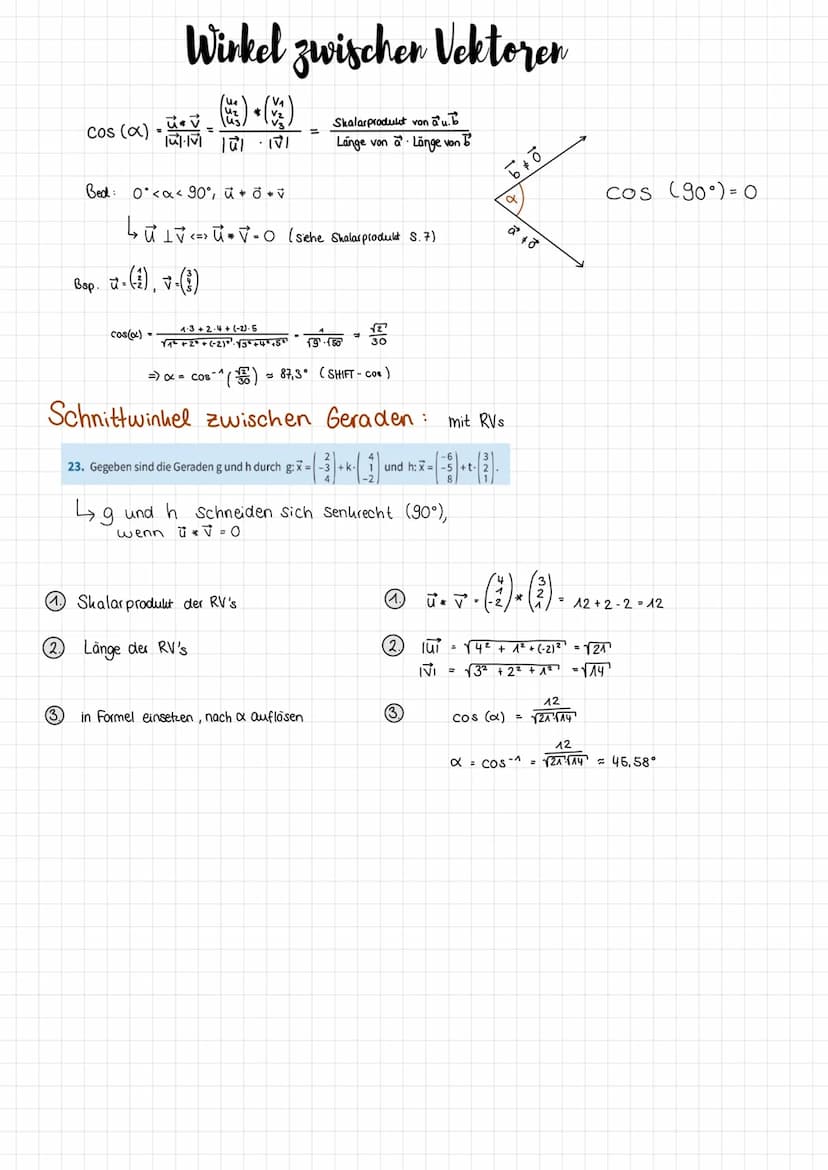 Winkel zwischen Vektoren
cos (α) = u⃗ * v⃗ / |u⃗|·|v⃗| = (u₁ u₂ u₃) * (v₁ v₂ v₃) / |u⃗| · |v⃗| = Skalarprodukt von a⃗ u. b⃗ / Länge von a⃗ · Länge von b⃗
b⃗ ≠ o⃗
α
a⃗ ≠ o⃗
cos (90°) = 0
Bed: 0° < α < 90°, u⃗ ≠ o⃗ ≠ v⃗
↳ u⃗ ⊥ v⃗ <=> u⃗ * v⃗ = 0 (siehe Skalarprodukt S. 7)
Bsp. u⃗ = (1 2 -2), v⃗ = (3 4 5)
cos(α) = 1·3 + 2·4 + (-2)·5 / √1² + 2² + (-2)² · √3² + 4² + 5² = 1 / √9 · √50 = √2 / 30
=> α = cos⁻¹ (√2 / 30) ≈ 87,3° (SHIFT - cos)
Schnittwinkel zwischen Geraden : mit RVs
23. Gegeben sind die Geraden g und h durch g: x⃗ = (2 -3 4) + k · (4 1 -2) und h: x⃗ = (-6 -5 8) + t · (3 2 1).
↳ g und h schneiden sich senkrecht (90°),
wenn u⃗ * v⃗ = 0
① Skalarprodukt der RV's
① u⃗ * v⃗ = (4 1 -2) * (3 2 1) = 12 + 2 - 2 = 12
② Länge der RV's
② |u⃗| = √4² + 1² + (-2)² = √21
|v⃗| = √3² + 2² + 1² = √14
③ in Formel einsetzen, nach α auflösen
③ cos (α) = 12 / √21·√14
α = cos⁻¹ = 12 / √21·√14 ≈ 45,58°